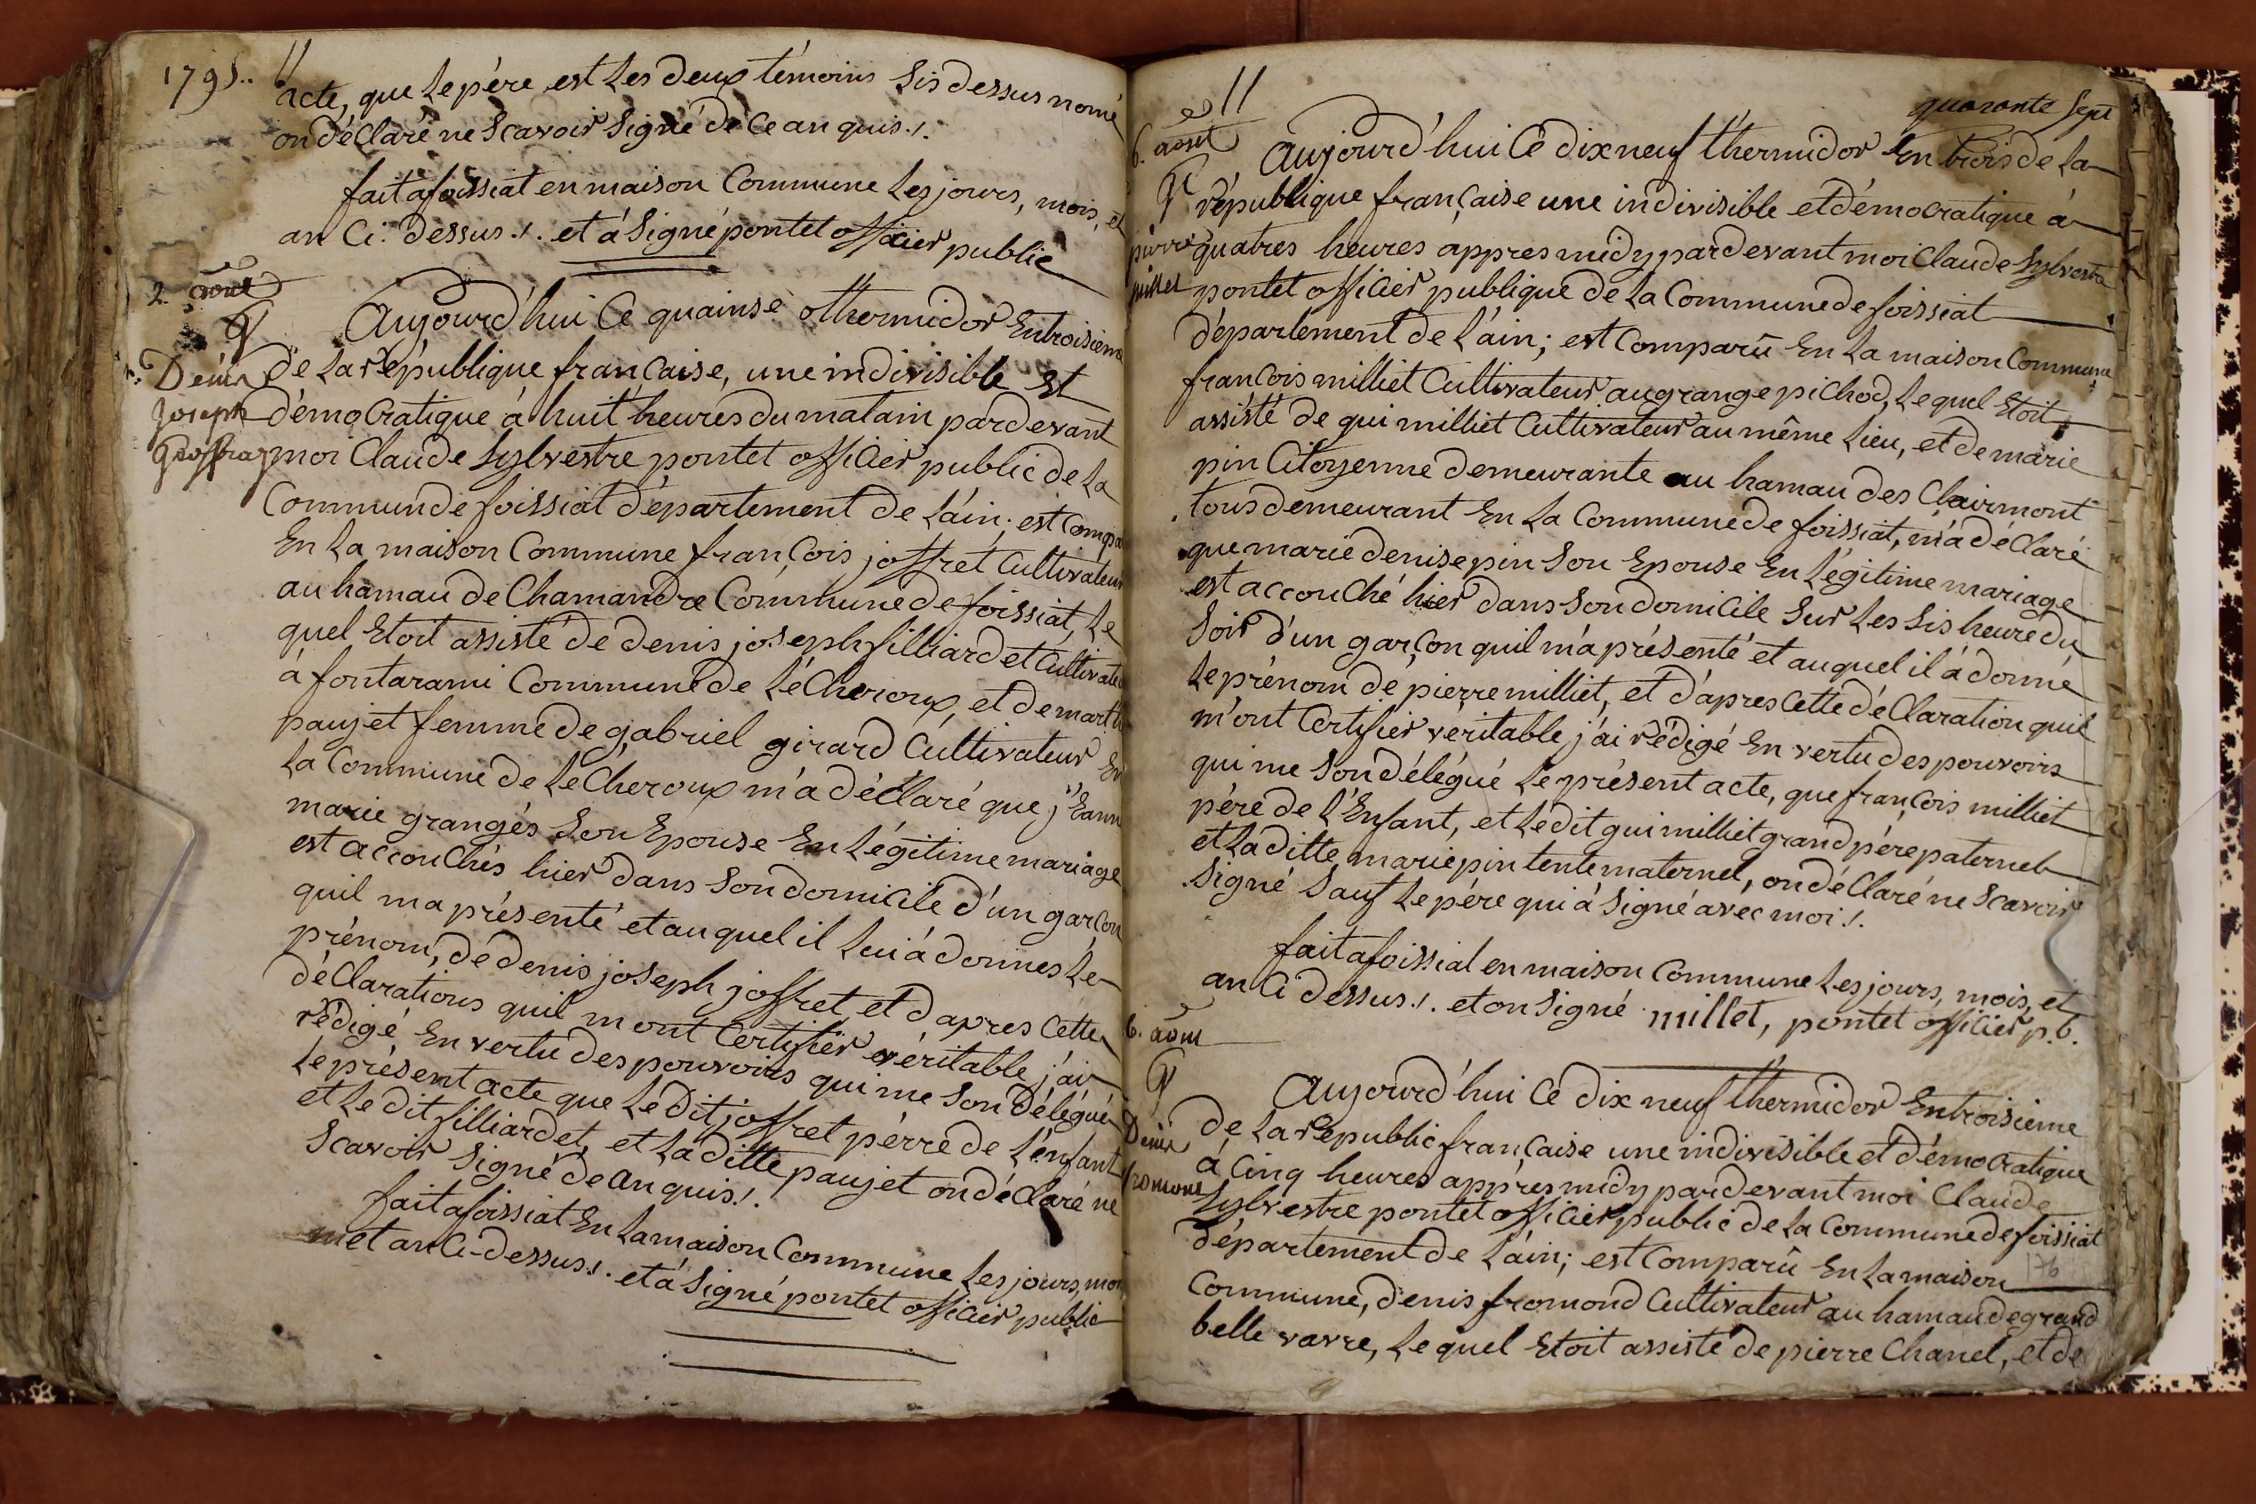 1795..
acte, que le pére est les deux témoins sis dessus nomé
on déClaré ne Scavoir Signé de Ce an quis./.
fait a foissiat en maison Commune les jours, mois, et
an Ci. dessus ./. et á Signé pontet officier public
2. aout
Aujourd'hui Ce quainse thermidor En troisieme
Denis
de la république française, une indivisible et
joseph
démocratique à huit heures du matain pardevant
moi Claude Sylvestre pontet officier public de la
Commun de foissiat département de l'áin; est Compa
En la maison Commune françois joffret Cultivateur
au hamau de Chamandre Commune de foissiat, le
quel Etoit assisté de denis joseph filliardet Cultivate
à fontarami Commune de léCheroux, et de mart
paujet femme de gabriel girard Cultivateur En
la Commune de leCheroux m'a déClaré que j'Eann
marie grangés Son Epouse En légitime mariage
est accouChés hier dans Son domicile d'un garçon
quil ma présenté et au quel il lui á donnés le
prénom, de denis joseph joffret, et d'apres Cette
déClarations quil m'ont Certifiér véritable j'ai
rédigé En vertu des pouvoirs qui me Son délégué
le présent acte que le Dit joffret pérre de l'énfant
et le dit filliardet, et la ditte paujet on déClaré ne
Scavoir Signé de an quis!.
fait a foissiat En la maison Commune les jours, moi
et an Ci-dessus ./. et á Signé pontet officier public
quarante Sept
6. aout
Aujourd'hui Ce dix neuf thermidor En trois de la
république française une indivisible et démocratique á
pierre
quatres heures appres midy pardevant moi Claude Sylvestre
millet
pontet officiér publique de la Commune de foissiat
département de l'ain; est Comparu En la maison Commune
françois milliet Cultivateur au grange piChod, le quel Etoit
assisté de gui milliet Cultivateur au même lieu, et de marie
pin Citoyenne demeurante au hamau des Clairmont
tous demeurant En la Commune de foissiat, m'á déClaré
que marie denise pin Son Epouse En légitime mariage
est accouChé hier dans Son domicile Sur les Sis heure du
Soir d'un garçon quil m'á présenté et auquel il á donné
le prénom de pierre milliet, et d'apres Cette déClaration quil
m'ont Certifier veritable j'ai rédigé En vertu des pouvoirs
qui me Son délégué le présent acte, que françois milliet
pére de l'Enfant, et lédit gui milliet grand pére paternel
et la ditte marie pin tente maternel, on déClaré ne Scavoir
Signé Sauf le pére qui á Signé avec moi !.
fait a foissial en maison Commune les jours, mois, et
an Ci dessus ./. et on Signé millet, pontet officier p.b.
6. aout
Aujourd'hui Ce dix neuf thermidor En troisieme
Denis
de la republic française une indivisible et démocratique
fromont
á Cinq heures appres midy pardevant moi Claude
Sylvestre pontet officier public de la Commune de foissiat
département de l'áin; est Comparu En la maison
Commune, denis fromond Cultivateur au hamau de grand
belle vavre, le quel Etoit assisté de pierre Chanel, et de